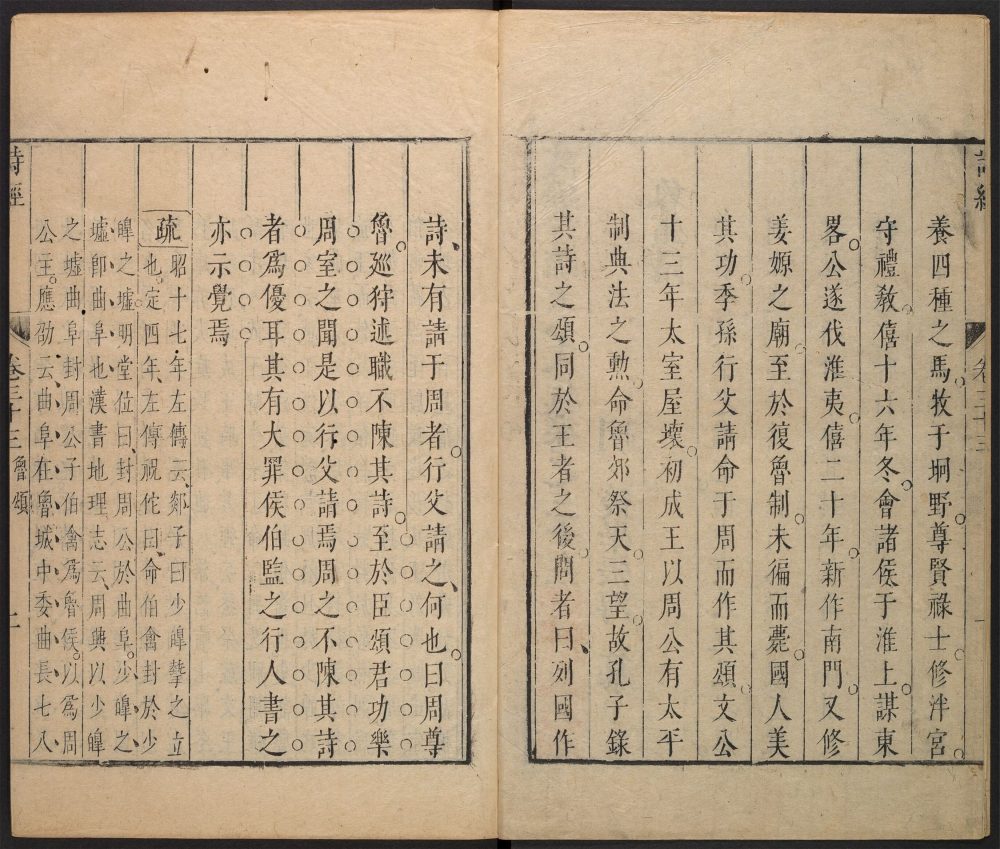 詩經
卷三十三
養四種之馬牧于坰野尊賢祿士修泮宮
守禮敎僖十六年冬會諸侯于淮上謀東
畧公遂伐淮夷僖二十年新作南門又修
姜嫄之廟至於復魯制未徧而薨國人美
其功季孫行父請命于周而作其頌文公
十三年太室屋壞初成王以周公有太平
制典法之勲命魯郊祭天三望故孔子錄
其詩之頌同於王者之後問者曰列國作
詩未有請于周者行父請之何也曰周尊
魯廵狩述職不陳其詩至於臣頌君功樂
周室之聞是以行父請焉周之不陳其詩
者爲優耳其有大罪侯伯監之行人書之
亦示覺焉
疏 昭十七年左傳云郯子曰少皡摯之立
也定四年左傳祝佗曰命伯禽封於少
皡之墟明堂位曰封周公於曲阜少皡之
墟卽曲阜也漢書地理志云周興以少皡
之墟曲阜封周公子伯禽爲魯侯以爲周
公主應劭云曲阜在魯城中委曲長七八
詩經
卷三十三 魯頌
二